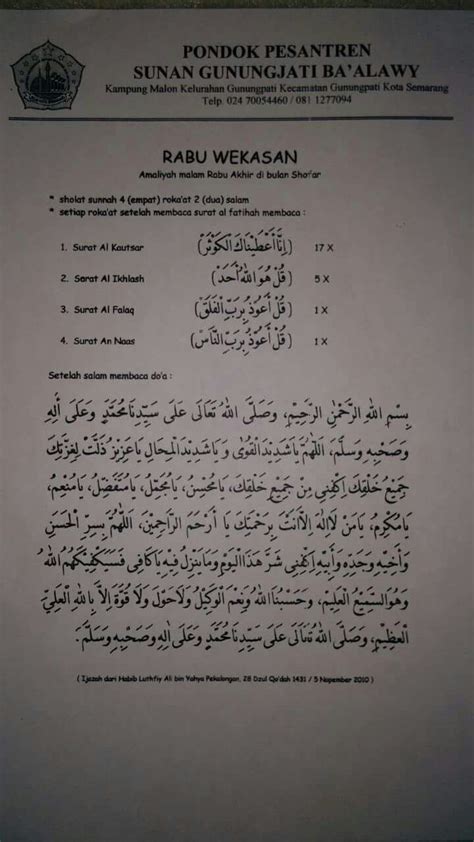 PONDOK PESANTREN
SUNAN GUNUNGJATI BA'ALAWY
Kampung Malon Kelurahan Gunungpati Kecamatan Gunungpati Kota Semarang
Telp. 024 70054460 / 081 1277094
RABU WEKASAN
Amaliyah malam Rabu Akhir di bulan Shofar
* sholat sunnah 4 (empat) roka'at 2 (dua) salam
* setiap roka'at setelah membaca surat al fatihah membaca :
1. Surat Al Kautsar (اِنَّا أَعْطَيْنَاكَ الْكَوْثَرْ) 17 X
2. Surat Al Ikhlash (قُلْ هُوَ اللهُ أَحَدْ) 5 X
3. Surat Al Falaq (قُلْ أَعُوْذُ بِرَبِّ الْفَلَقْ) 1 X
4. Surat An Naas (قُلْ أَعُوْذُ بِرَبِّ النَّاسْ) 1 X
Setelah salam membaca do'a :
بِسْمِ اللهِ الرَّحْمٰنِ الرَّحِيْمِ، وَصَلَّى اللهُ تَعَالَى عَلَى سَيِّدِنَا مُحَمَّدٍ وَعَلَى اٰلِهِ
وَصَحْبِهِ وَسَلَّمَ، اَللّٰهُمَّ يَا شَدِيْدَ الْقُوَى وَيَا شَدِيْدَ الْمِحَالِ يَا عَزِيْزُ ذَلَّتْ لِعِزَّتِكَ
جَمِيْعُ خَلْقِكَ اِكْفِنِى مِنْ جَمِيْعِ خَلْقِكَ، يَا مُحْسِنُ، يَا مُجَمِّلُ، يَا مُتَفَضِّلُ، يَا مُنْعِمُ،
يَا مُكْرِمُ، يَا مَنْ لَا اِلٰهَ اِلَّا اَنْتَ بِرَحْمَتِكَ يَا أَرْحَمَ الرَّاحِمِيْنَ، اَللّٰهُمَّ بِسِرِّ الْحَسَنِ
وَأَخِيْهِ وَجَدِّهِ وَأَبِيْهِ اِكْفِنِى شَرَّ هٰذَا الْيَوْمِ وَمَا يَنْزِلُ فِيْهِ يَا كَافِى فَسَيَكْفِيْكَهُمُ اللهُ
وَهُوَ السَّمِيْعُ الْعَلِيْمُ، وَحَسْبُنَا اللهُ وَنِعْمَ الْوَكِيْلُ وَلَا حَوْلَ وَلَا قُوَّةَ اِلَّا بِاللهِ الْعَلِيِّ
الْعَظِيْمِ، وَصَلَّى اللهُ تَعَالَى عَلَى سَيِّدِنَا مُحَمَّدٍ وَعَلَى اٰلِهِ وَصَحْبِهِ وَسَلَّمَ.
( Ijazah dari Habib Luthfiy Ali bin Yahya Pekalongan, 28 Dzul Qo'dah 1431 / 5 Nopember 2010 )